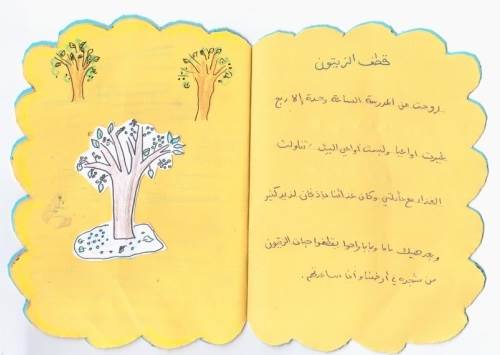 قطف الزيتون
روحت من المدرسة الساعة وحدة إلا ربع
غيرت اواعيا ولبست اواعي البيت، تناولت
الغداء مع عائلتي وكان غدائنا لذيذ كثير
وبعد هيك ماما وبابا راحوا يقطفوا حبات الزيتون
من شجرة في أرضنا وأنا ساعدتهم.